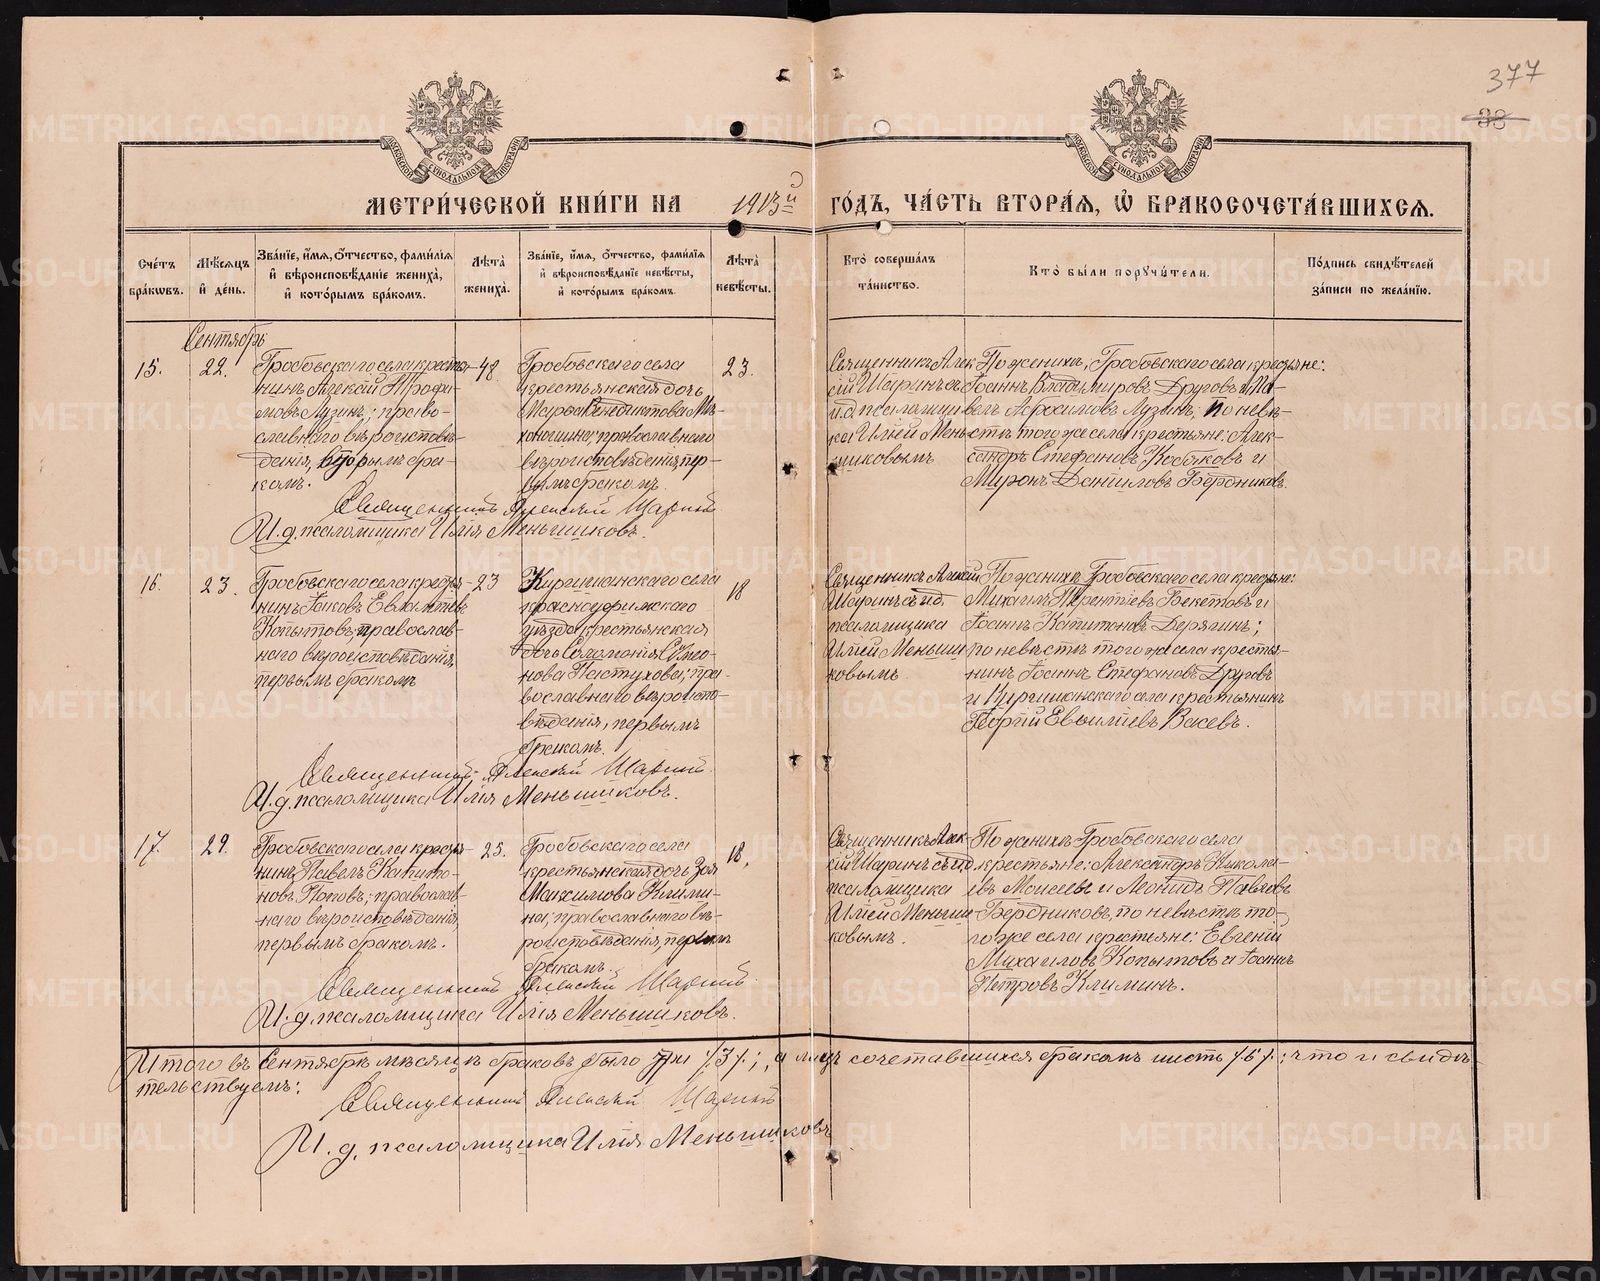 377
38
МОСКОВСКОЙ СѴНОДАЛЬНОЙ ТИПОГРАФІИ
МОСКОВСКОЙ СѴНОДАЛЬНОЙ ТИПОГРАФІИ
МЕТРИ́ЧЕСКОЙ КНИ́ГИ НА 1913й ГО́ДЪ, ЧА́СТЬ ВТОРА́Я, Ѽ БРАКОСОЧЕТА́ВШИХСЯ.
Сче́тъ бра́кωвъ.
Мѣ́сяцъ и҆ де́нь.
Зва́нїе, и҆́мя, ѻ҆́тчество, фами́лїя и҆ вѣроисповѣ́данїе жениха̀, и҆ кото́рымъ бра́комъ.
Лѣ́та жениха̀.
Зва́нїе, и҆́мя, ѻ҆́тчество, фами́лїя и҆ вѣроисповѣ́данїе невѣ́сты, и҆ кото́рымъ бра́комъ.
Лѣ́та невѣ́сты.
Кто̀ соверша́лъ та́инство.
Кто̀ бы́ли порꙋчи́тели.
По́дпись свидѣ́телей за́писи по жела́нїю.
Сентябрь
15.
22.
Гробовскаго села крестья-
нинъ Алексій Трофи-
мовъ Лузинъ; право-
славнаго вѣроисповѣ-
данія, вторымъ бра-
комъ.
48
Гробовскаго села
крестьянская дочь
Марѳа Венедиктова Мѣ-
хоношина; православнаго
вѣроисповѣданія, пер-
вымъ бракомъ.
23.
Священникъ Алек-
сій Шаринъ съ
и.д. псаломщи-
ка Иліей Мень-
шиковымъ
По женихѣ, Гробовскаго села крестьяне:
Іоаннъ Владимировъ Друговъ и Па-
велъ Абросимовъ Лузинъ; по невѣ-
стѣ того же села крестьяне: Алек-
сандръ Стефановъ Кобяковъ и
Миронъ Даниловъ Бердниковъ.
Священникъ Алексій Шаринъ
И. д. псаломщика Илія Меньшиковъ.
16.
23.
Гробовскаго села крестья-
нинъ Іаковъ Евлампіевъ
Копытовъ, православ-
наго вѣроисповѣданія,
первымъ бракомъ
23
Киргишанскаго села
Красноуфимскаго
уѣзда крестьянская
дочь Соломонія Симео-
нова Пастухова; пра-
вославнаго вѣроиспо-
вѣданія, первымъ
бракомъ.
18
Священникъ Алексій
Шаринъ съ и.д.
псаломщика
Иліей Меньши-
ковымъ
По женихѣ Гробовскаго села крестьяне:
Михаилъ Терентіевъ Бекетовъ и
Іоаннъ Капитоновъ Дерягинъ;
по невѣстѣ того же села крестья-
нинъ Іоаннъ Стефановъ Друговъ
и Киргишанскаго села крестьянинъ
Георгій Евѳиміевъ Васевъ.
Священникъ Алексій Шаринъ
И. д. псаломщика Илія Меньшиковъ.
17.
29.
Гробовскаго села крестья-
нинъ Павелъ Капито-
новъ Поповъ; православ-
наго вѣроисповѣданія,
первымъ бракомъ.
25.
Гробовскаго села
крестьянская дочь Зоя
Максимова Клими-
на; православнаго вѣ-
роисповѣданія, первымъ
бракомъ.
18.
Священникъ Алек-
сій Шаринъ съ и.д.
псаломщика
Иліей Меньши-
ковымъ.
По женихѣ Гробовскаго села
крестьяне: Александръ Никола-
евъ Моисеевъ и Леонидъ Павловъ
Бердниковъ, по невѣстѣ то-
го же села крестьяне: Евгеній
Михаиловъ Копытовъ и Іоаннъ
Петровъ Климинъ.
Священникъ Алексій Шаринъ
И. д. псаломщика Илія Меньшиковъ.
Итого въ Сентябрѣ мѣсяцѣ браковъ было три /3/; а лицъ сочетавшихся бракомъ шесть /6/; что и свидѣ-
тельствуемъ:
Священникъ Алексій Шаринъ
И. д. псаломщика Илія Меньшиковъ
METRIKI.GASO-URAL.RU